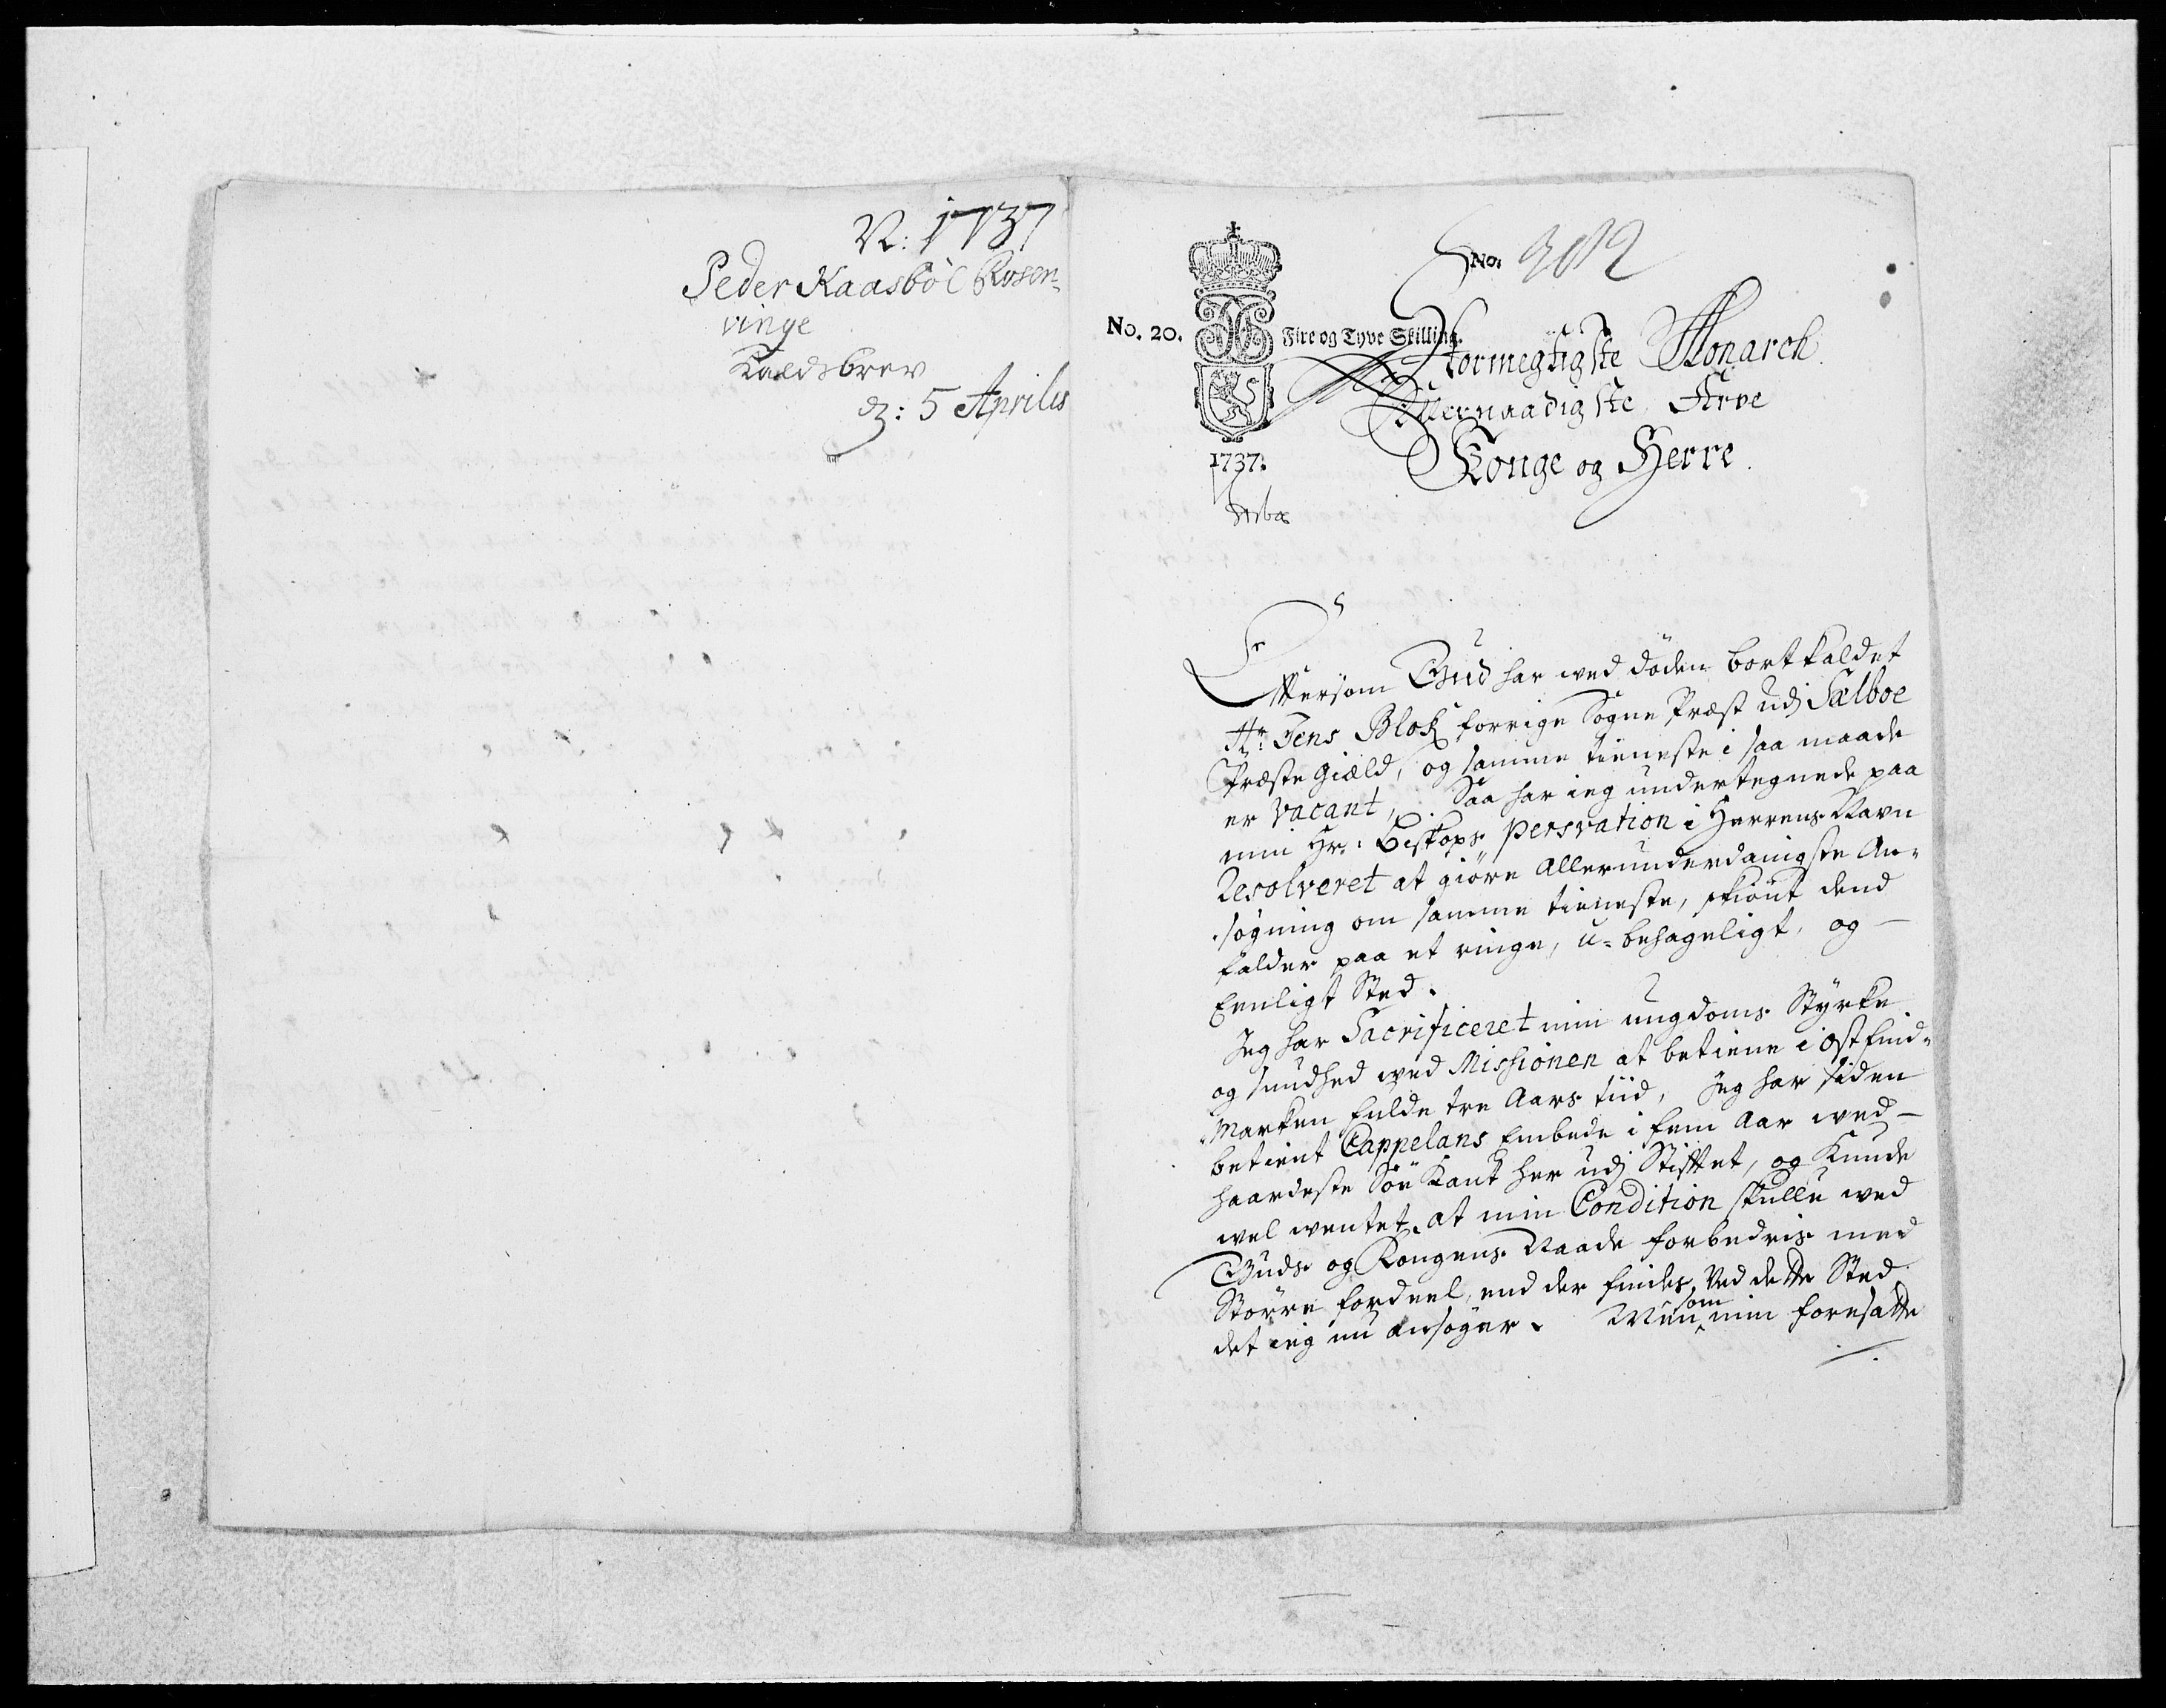 N: 1737
Peder Kaasböl Rosen-
vinge
Kaldsbrev
d: 5 Aprilis
No.
No. 20.
Fire og Tyve Skilling.
1737.
Stormegtigste Monarch
Allernaadigste Arve
Konge og Herre.
Eftersom Gud har ved döden bortkaldet
Hr: Jens Blok forrige Sogne Præst udj Sælboe
Præste Giæld, og samme tieneste i saa maade
er vacant, Saa har ieg undertegnede paa
min Hr: Biskops persvation i Herrens Navn
Resolveret at giöre allerunderdanigste An-
søgning om samme tieneste, skiönt dend
falder paa et ringe, u-behageligt, og
Eenligt Sted.
Jeg har Sacrificeret min ungdoms Styrke
og sundhed ved Missionen at betiene i Ostfind-
marken fulde tre Aars tiid, Jeg har siden
betient Cappelans Embede i fem Aar ved
haardeste Söe Kant her udj Stiftet, og Kunde
vel ventet at min Condition skulle ved
Guds og Kongens Naade forbedris med
Större fordeel, end der findes Ved dette Sted
det ieg nu ansøger. Men som min foresatte